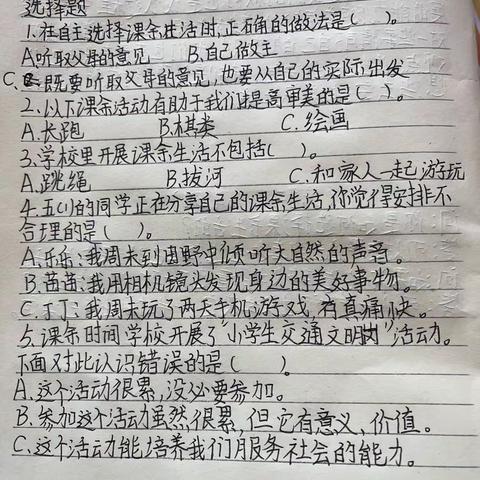 选择题
1.在自主选择课余生活时,正确的做法是( )。
A.听取父母的意见 B.自己做主
C.既要听取父母的意见,也要从自己的实际出发
2.以下课余活动有助于我们提高审美的是( )。
A.长跑 B.棋类 C.绘画
3.学校里开展课余生活不包括( )。
A.跳绳 B.拔河 C.和家人一起游玩
4.五(1)的同学正在分享自己的课余生活,你觉得安排不
合理的是( )。
A.乐乐:我周末到田野中倾听大自然的声音。
B.茜茜:我用相机镜头发现身边的美好事物。
C.丁丁:我周末玩了两天手机游戏,真痛快。
5.课余时间学校开展了"小学生交通文明岗"活动。
下面对此认识错误的是( )。
A.这个活动很累,没必要参加。
B.参加这个活动虽然很累,但它有意义、价值。
C.这个活动能培养我们服务社会的能力。